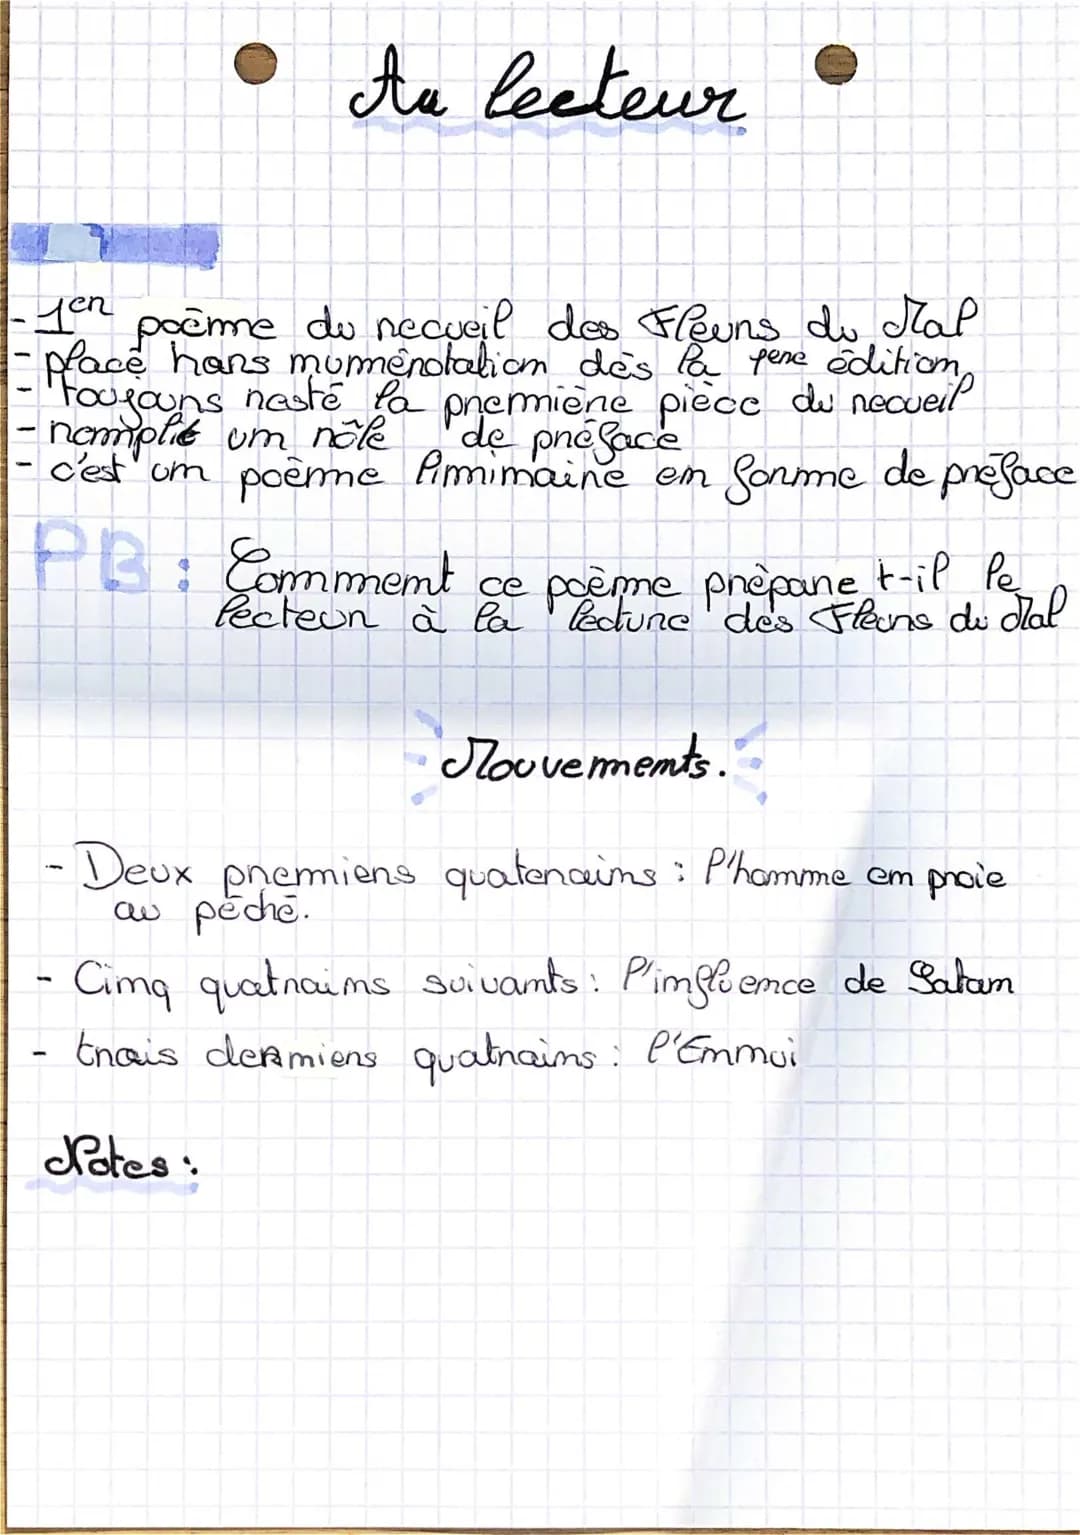 Au lecteur
- 1er poème du recueil des Fleurs du Mal
- placé hors numérotation dès la 1ère édition
- toujours resté la première pièce du recueil
- remplit un rôle de préface
- c'est un poème liminaire en forme de préface
PB : Comment ce poème prépare t-il le
lecteur à la lecture des Fleurs du Mal
Mouvements.
- Deux premiers quatrains : l'homme en proie
au péché.
- Cinq quatrains suivants : l'influence de Satan
- trois derniers quatrains : l'Ennui
Notes :